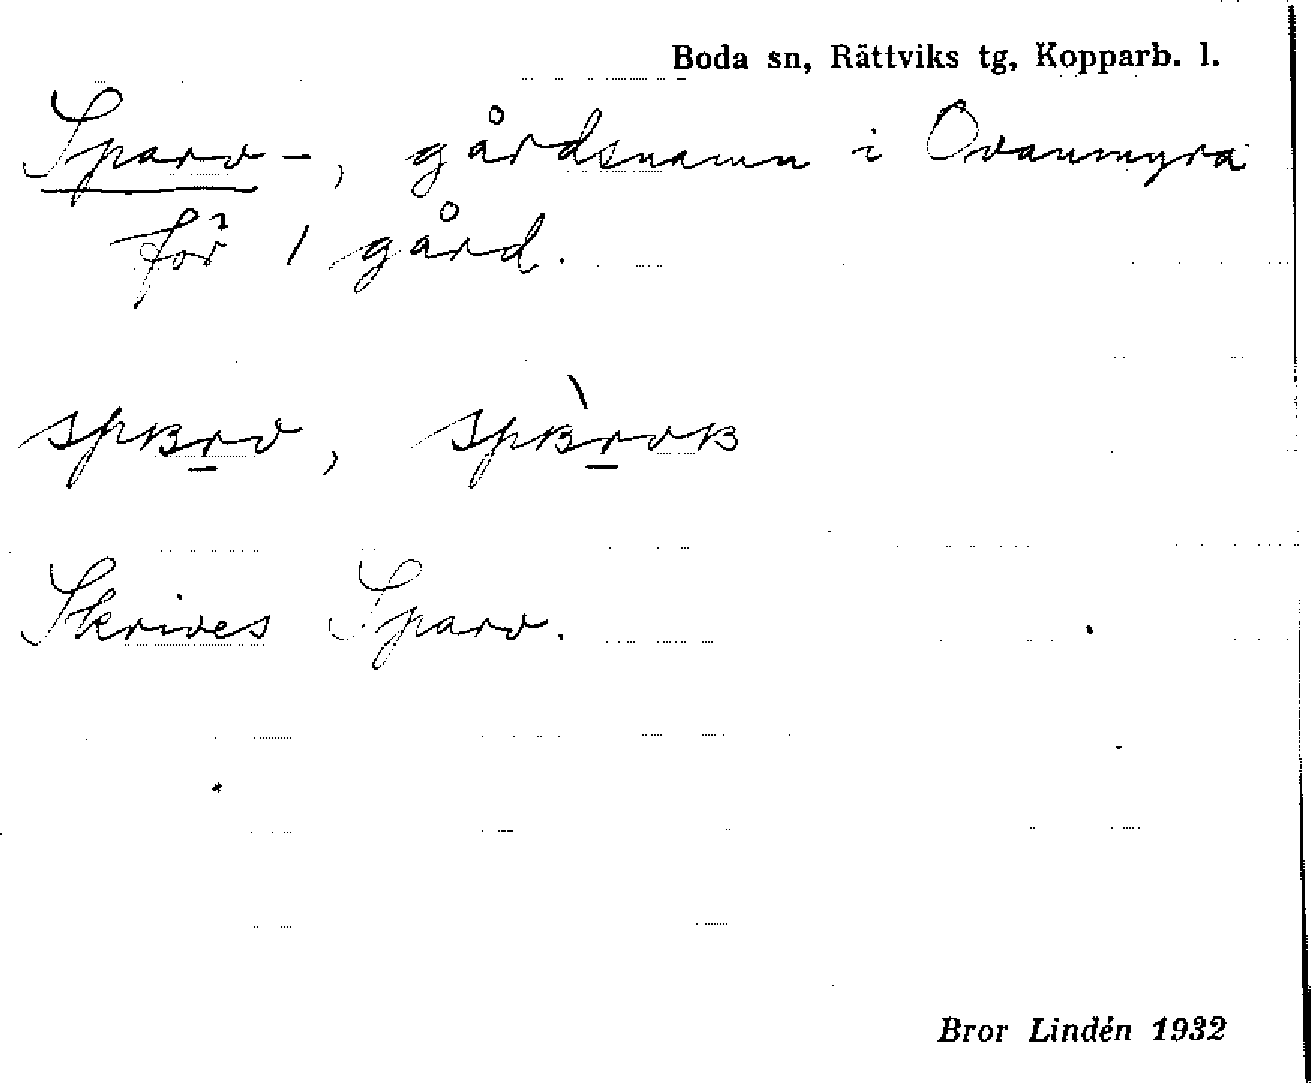 Boda sn, Rättviks tg, Kopparb. l.
Sparv-, gårdsnamn i Ovanmyra
för 1 gård.
spʙr̲v, spʙ̀r̲vʙ
Skrives Sparv.
Bror Lindén 1932